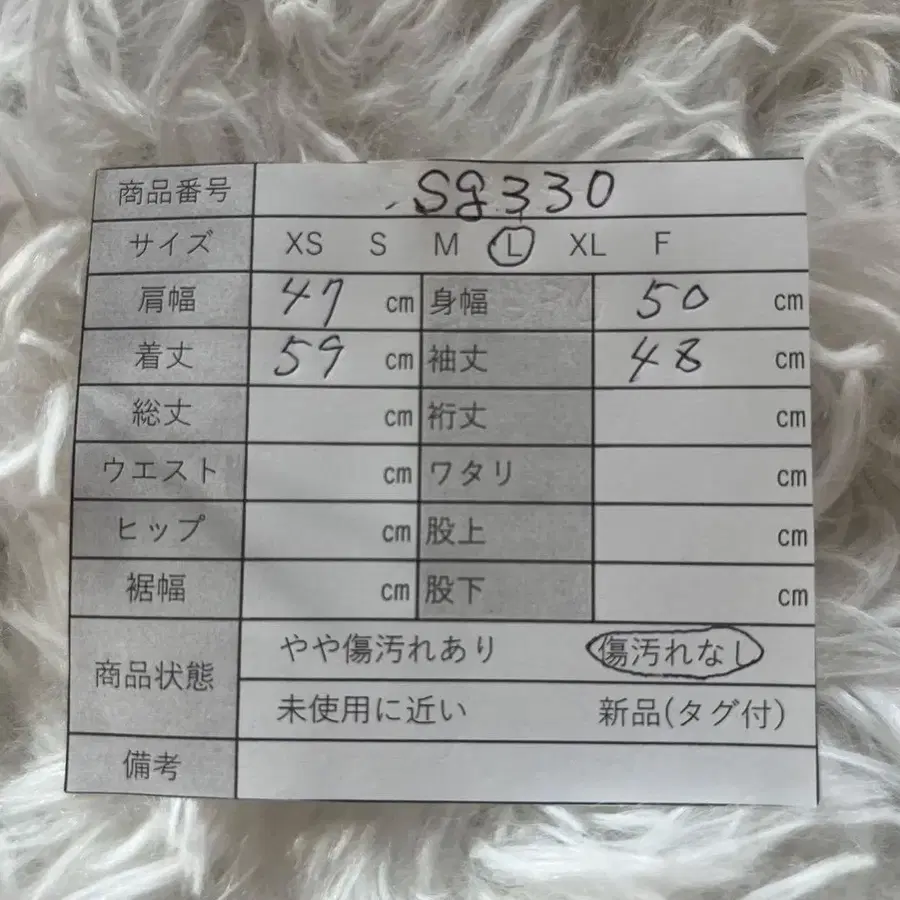 商品番号 Sg330
サイズ XS S M L XL F
肩幅 47 cm 身幅 50 cm
着丈 59 cm 袖丈 48 cm
総丈 cm 裄丈 cm
ウエスト cm ワタリ cm
ヒップ cm 股上 cm
裾幅 cm 股下 cm
商品状態 やや傷汚れあり 傷汚れなし
未使用に近い 新品(タグ付)
備考